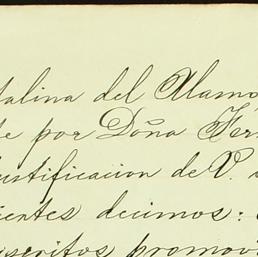 talina del Alamo
te por Doña Fer
ustificaciion de V. s
ientes decimos:
uscritos promovi